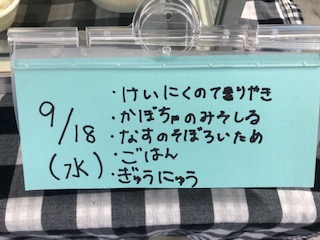 9/18
(水)
・けいにくのてりやき
・かぼちゃのみそしる
・なすのそぼろいため
・ごはん
・ぎゅうにゅう